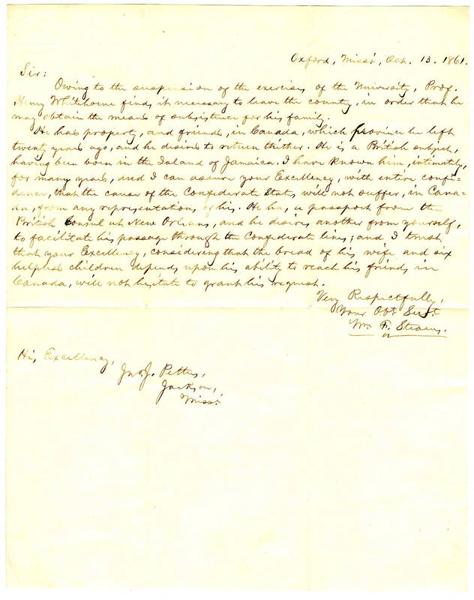 Oxford, Miss: Oct. 13. 1861.
Sir:
Owing to the suspension of the exercises of the University, Prof.
Henry Whitehorne finds it necessary to leave the country, in order that he
may obtain the means of subsistence for his family.
He has property, and friends, in Canada, which province he left
twenty years ago, and he desires to return thither. He is a British subject,
having been born in the Island of Jamaica. I have known him, intimately,
for many years, and I can assure your Excellency, with entire confi-
dence, that the cause of the Confederate States will not suffer, in Cana-
da, from any representations of his. He has a passport from the
British Consul at New Orleans, and he desires another from yourself,
to facilitate his passage through the Confederate lines; and I trust
that your Excellency, considering that the bread of his wife and six
helpless children depends upon his ability to reach his friends in
Canada, will not hesitate to grant his request.
Very Respectfully,
Your Obt Svt
Wm F. Stearns.
His Excellency,
Jno J. Pettus,
Jackson,
Miss: